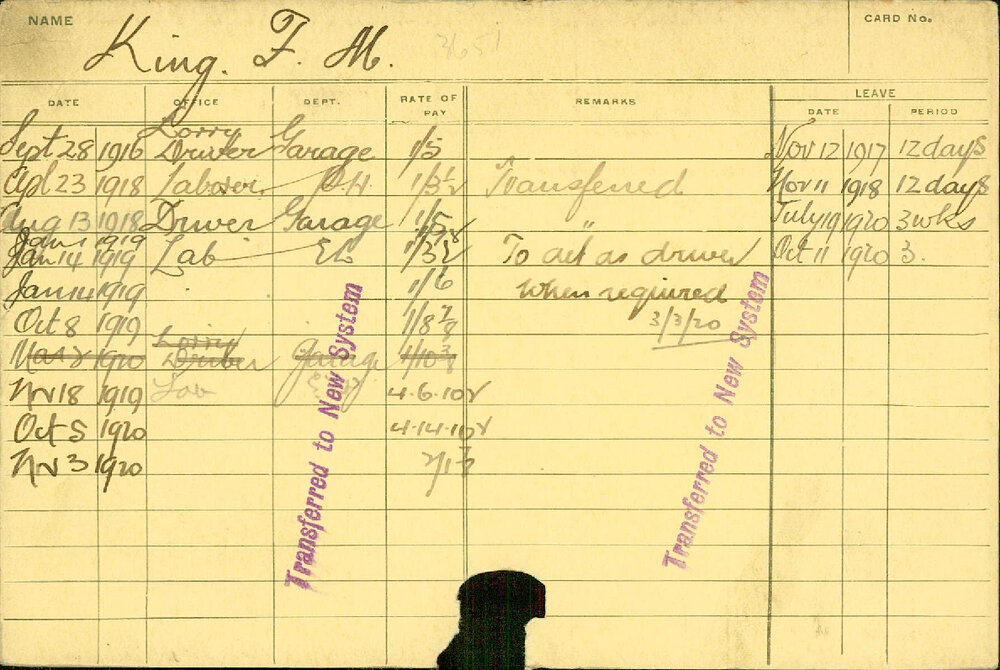 NAME King. F. M. 3651 CARD No.
DATE OFFICE DEPT. RATE OF PAY REMARKS LEAVE DATE PERIOD
Sept 28 1916 Lorry Driver Garage 1/5 Nov 12 1917 12 days
Apl 23 1918 Labourer P.H. 1/3½ Transferred Nov 11 1918 12 days
Aug 13 1918 Driver Garage 1/5 " July 19 1920 3 wks
Jan 1 1919
Jan 14 1919 Lab 1/3 To act as driver Oct 11 1920 3.
Jan 14 1919 1/6 when required
Oct 8 1919 1/8 7/8 3/3/20
Mar 2 1920 Lorry Driver Garage 1/10 3/8
Nov 18 1919 Lab 4.6.10
Oct 5 1920 4.14.10
Nov 3 1920 2/1
Transferred to New System
Transferred to New System